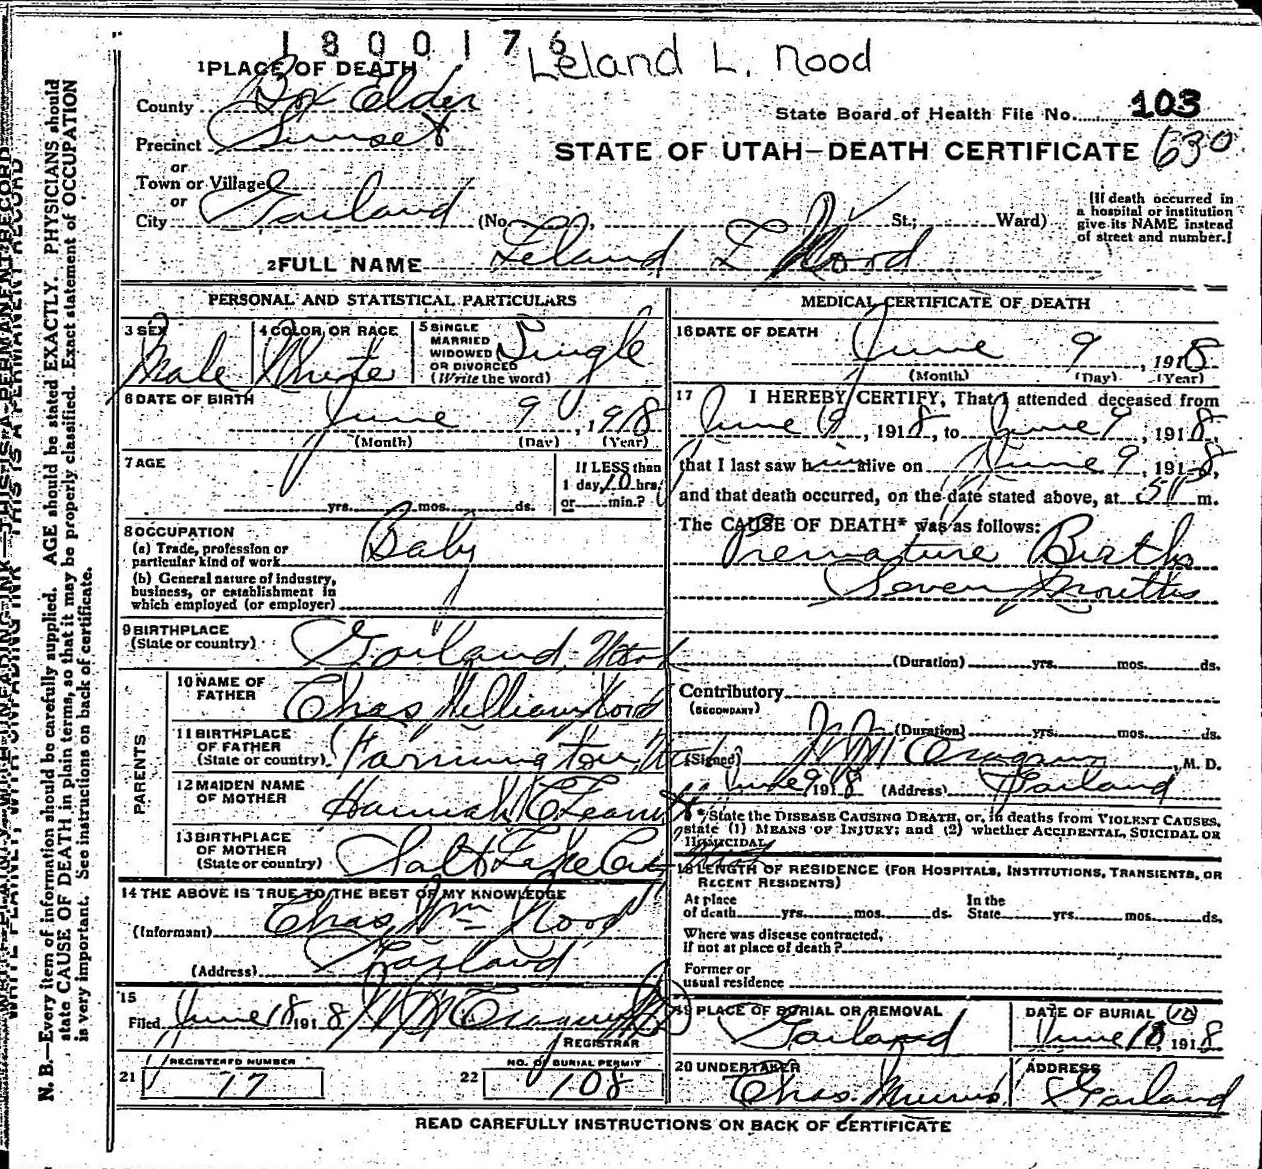 1800176
Leland L. Nood
1 PLACE OF DEATH
County Box Elder
State Board of Health File No. 103
Precinct Sunset
STATE OF UTAH—DEATH CERTIFICATE 630
or
Town or Village
or
City Garland (No. St.; Ward)
[If death occurred in
a hospital or institution
give its NAME instead
of street and number.]
2 FULL NAME Leland L
PERSONAL AND STATISTICAL PARTICULARS
3 SEX Male
4 COLOR OR RACE White
5 SINGLE
MARRIED
WIDOWED
OR DIVORCED
(Write the word) Single
6 DATE OF BIRTH
June 9, 1918
(Month) (Day) (Year)
7 AGE
yrs. mos. ds.
If LESS than
1 day, 10 hrs.
or min.?
8 OCCUPATION
(a) Trade, profession or
particular kind of work Baby
(b) General nature of industry,
business, or establishment in
which employed (or employer)
9 BIRTHPLACE
(State or country) Garland Utah
PARENTS
10 NAME OF
FATHER Chas William Nood
11 BIRTHPLACE
OF FATHER
(State or country) Farmington Utah
12 MAIDEN NAME
OF MOTHER Hannah
13 BIRTHPLACE
OF MOTHER
(State or country) Salt Lake City Utah
14 THE ABOVE IS TRUE TO THE BEST OF MY KNOWLEDGE
(Informant) Chas Wm Nood
(Address) Garland
15
Filed June 18 1918
REGISTRAR
21 REGISTERED NUMBER
17
22 NO. OF BURIAL PERMIT
108
MEDICAL CERTIFICATE OF DEATH
16 DATE OF DEATH
June 9, 1918
(Month) (Day) (Year)
17 I HEREBY CERTIFY, That I attended deceased from
June 9, 1918, to June 9, 1918,
that I last saw him alive on June 9, 1918,
and that death occurred, on the date stated above, at m.
The CAUSE OF DEATH* was as follows:
Premature Birth
Seven Months
(Duration) yrs. mos. ds.
Contributory
(SECONDARY)
(Duration) yrs. mos. ds.
(Signed) , M. D.
June 9 1918 (Address) Garland
* State the DISEASE CAUSING DEATH, or, in deaths from VIOLENT CAUSES,
state (1) MEANS OF INJURY; and (2) whether ACCIDENTAL, SUICIDAL OR
HOMICIDAL
18 LENGTH OF RESIDENCE (FOR HOSPITALS, INSTITUTIONS, TRANSIENTS, OR
RECENT RESIDENTS)
At place
of death yrs. mos. ds.
In the
State yrs. mos. ds.
Where was disease contracted,
if not at place of death?
Former or
usual residence
19 PLACE OF BURIAL OR REMOVAL
Garland
DATE OF BURIAL
June 10, 1918
20 UNDERTAKER
Chas.
ADDRESS
Garland
READ CAREFULLY INSTRUCTIONS ON BACK OF CERTIFICATE
N. B.—Every item of information should be carefully supplied. AGE should be stated EXACTLY. PHYSICIANS should
state CAUSE OF DEATH in plain terms, so that it may be properly classified. Exact statement of OCCUPATION
is very important. See instructions on back of certificate.